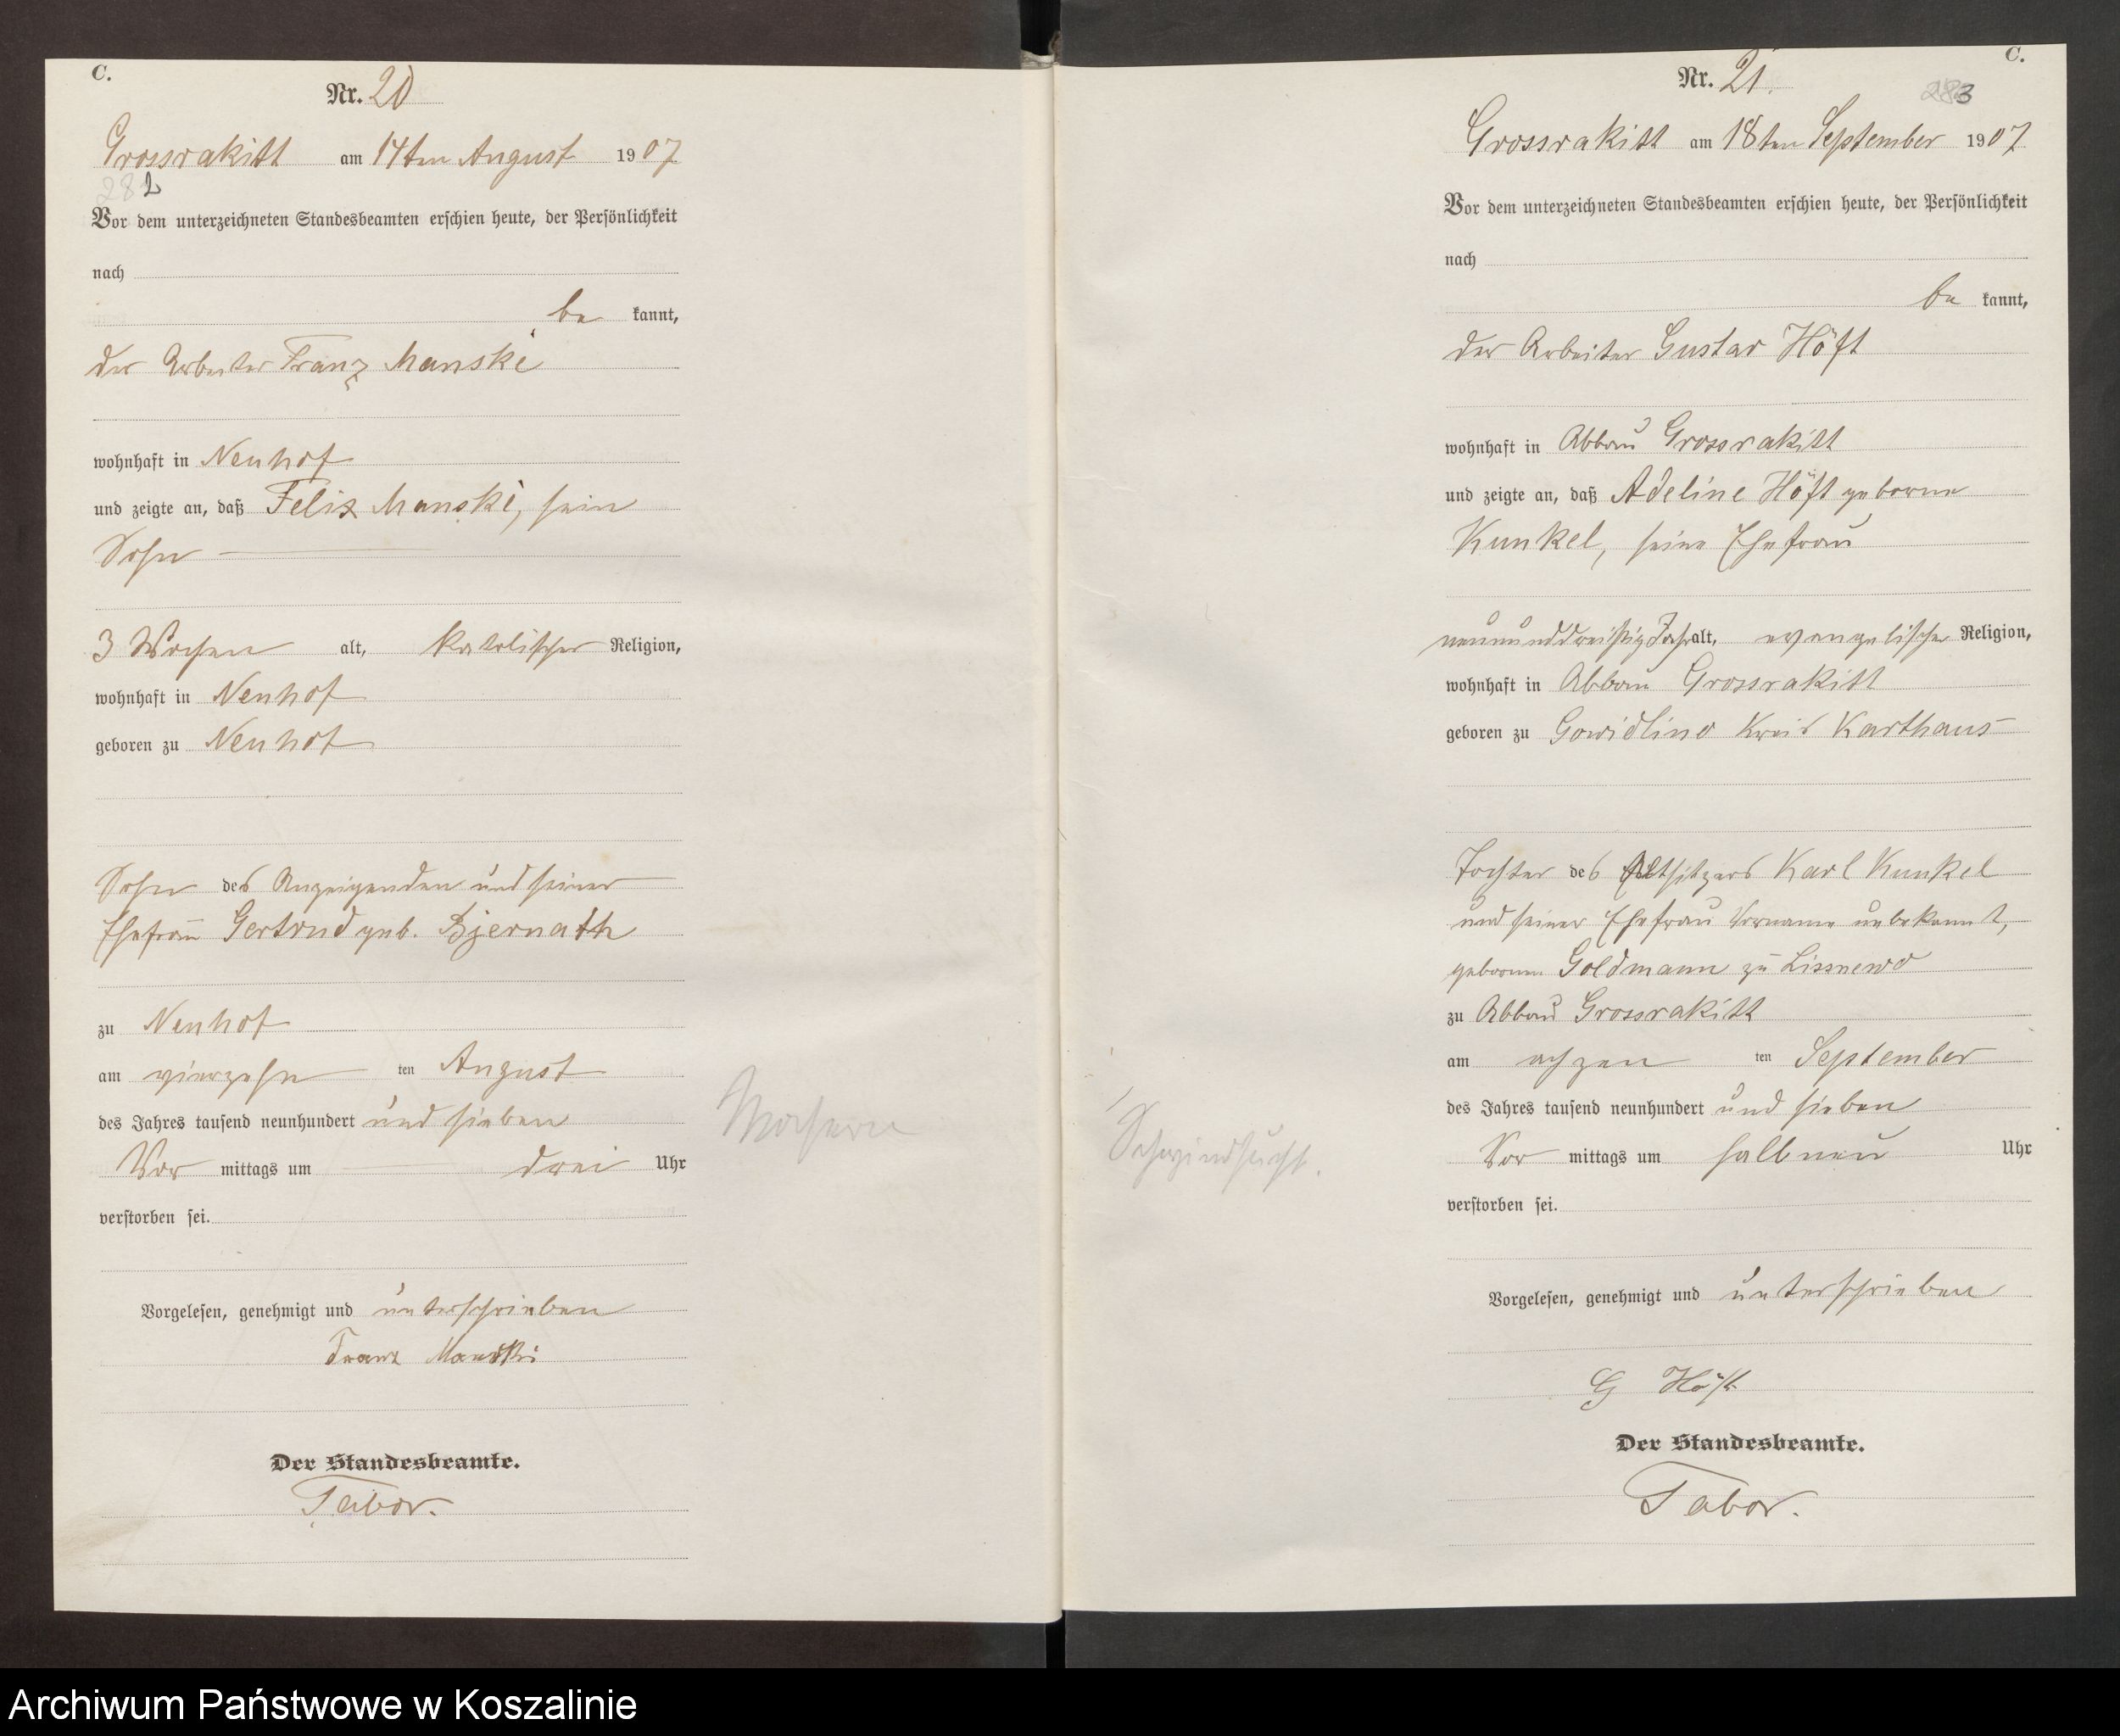 C.
Nr. 20
Grossrakitt am 14ten August 1907
282
Vor dem unterzeichneten Standesbeamten erschien heute, der Persönlichkeit
nach
be kannt,
der Arbeiter Franz Manski
wohnhaft in Neuhof
und zeigte an, daß Felix Manski, sein
Sohn
3 Wochen alt, katolischer Religion,
wohnhaft in Neuhof
geboren zu Neuhof
Sohn des Anzeigenden und seiner
Ehefrau Gertrud geb. Bjernath
zu Neuhof
am vierzehn ten August
des Jahres tausend neunhundert und sieben
Vor mittags um drei Uhr
verstorben sei.
Vorgelesen, genehmigt und unterschrieben
Franz Manski
Der Standesbeamte.
Tabor.
Masern
C.
Nr. 21.
283
Grossrakitt am 18ten September 1907
Vor dem unterzeichneten Standesbeamten erschien heute, der Persönlichkeit
nach
be kannt,
der Arbeiter Gustav Höft
wohnhaft in Abbau Grossrakitt
und zeigte an, daß Adeline Höft geborne
Kunkel, seine Ehefrau
neununddreißig Jahr alt, evangelischer Religion,
wohnhaft in Abbau Grossrakitt
geboren zu Gowidlino Kreis Karthaus
Tochter des Altsitzers Karl Kunkel
und seiner Ehefrau Vorname unbekannt,
geborenen Goldmann zu Lissnewo
zu Abbau Grossrakitt
am achzen ten September
des Jahres tausend neunhundert und sieben
Vor mittags um halb neun Uhr
verstorben sei.
Schwindsucht.
Vorgelesen, genehmigt und unterschrieben
G Höft
Der Standesbeamte.
Tabor.
Archiwum Państwowe w Koszalinie